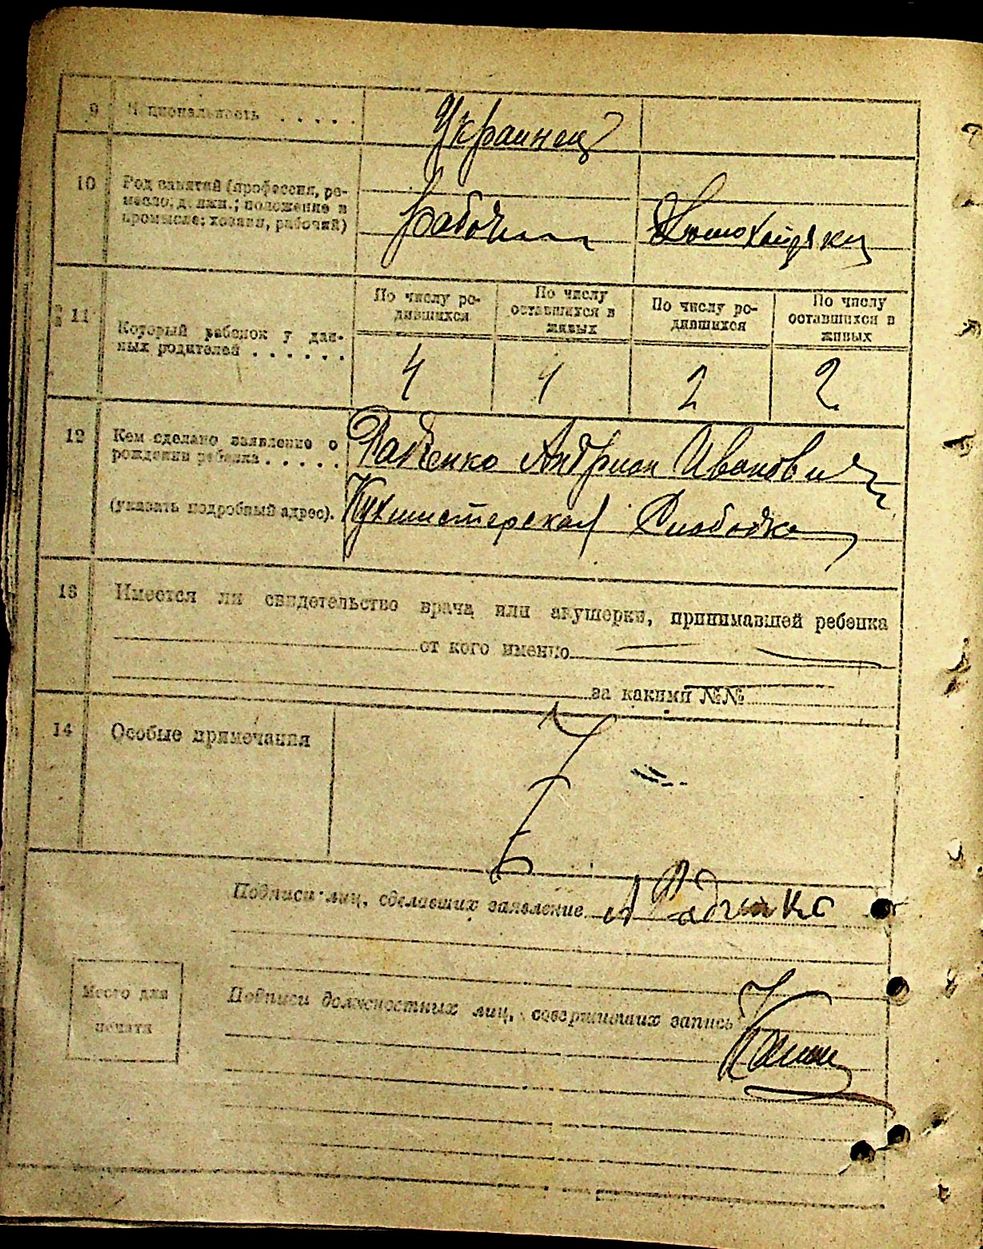 9 Национальность . . . . . Украинец
10 Род занятий (профессия, ре-
месло; должн.; положение в
промысле: хозяин, рабочий)
рабочий Домохозяйка
11 Который ребенок у дан-
ных родителей . . . . . .
По числу ро-
дившихся
По числу
оставшихся в
живых
По числу ро-
дившихся
По числу
оставшихся в
живых
4 1 2 2
12 Кем сделано заявление о
рождении ребенка . . . . . Радченко Андриан Иванович
(указать подробный адрес). Кухмистерская Слободка
13 Имеется ли свидетельство врача или акушерки, принимавшей ребенка
от кого именно
за какими №№
14 Особые примечания
Подписи лиц, сделавших заявление А Радченко
Место для
печати
Подписи должностных лиц, совершивших запись